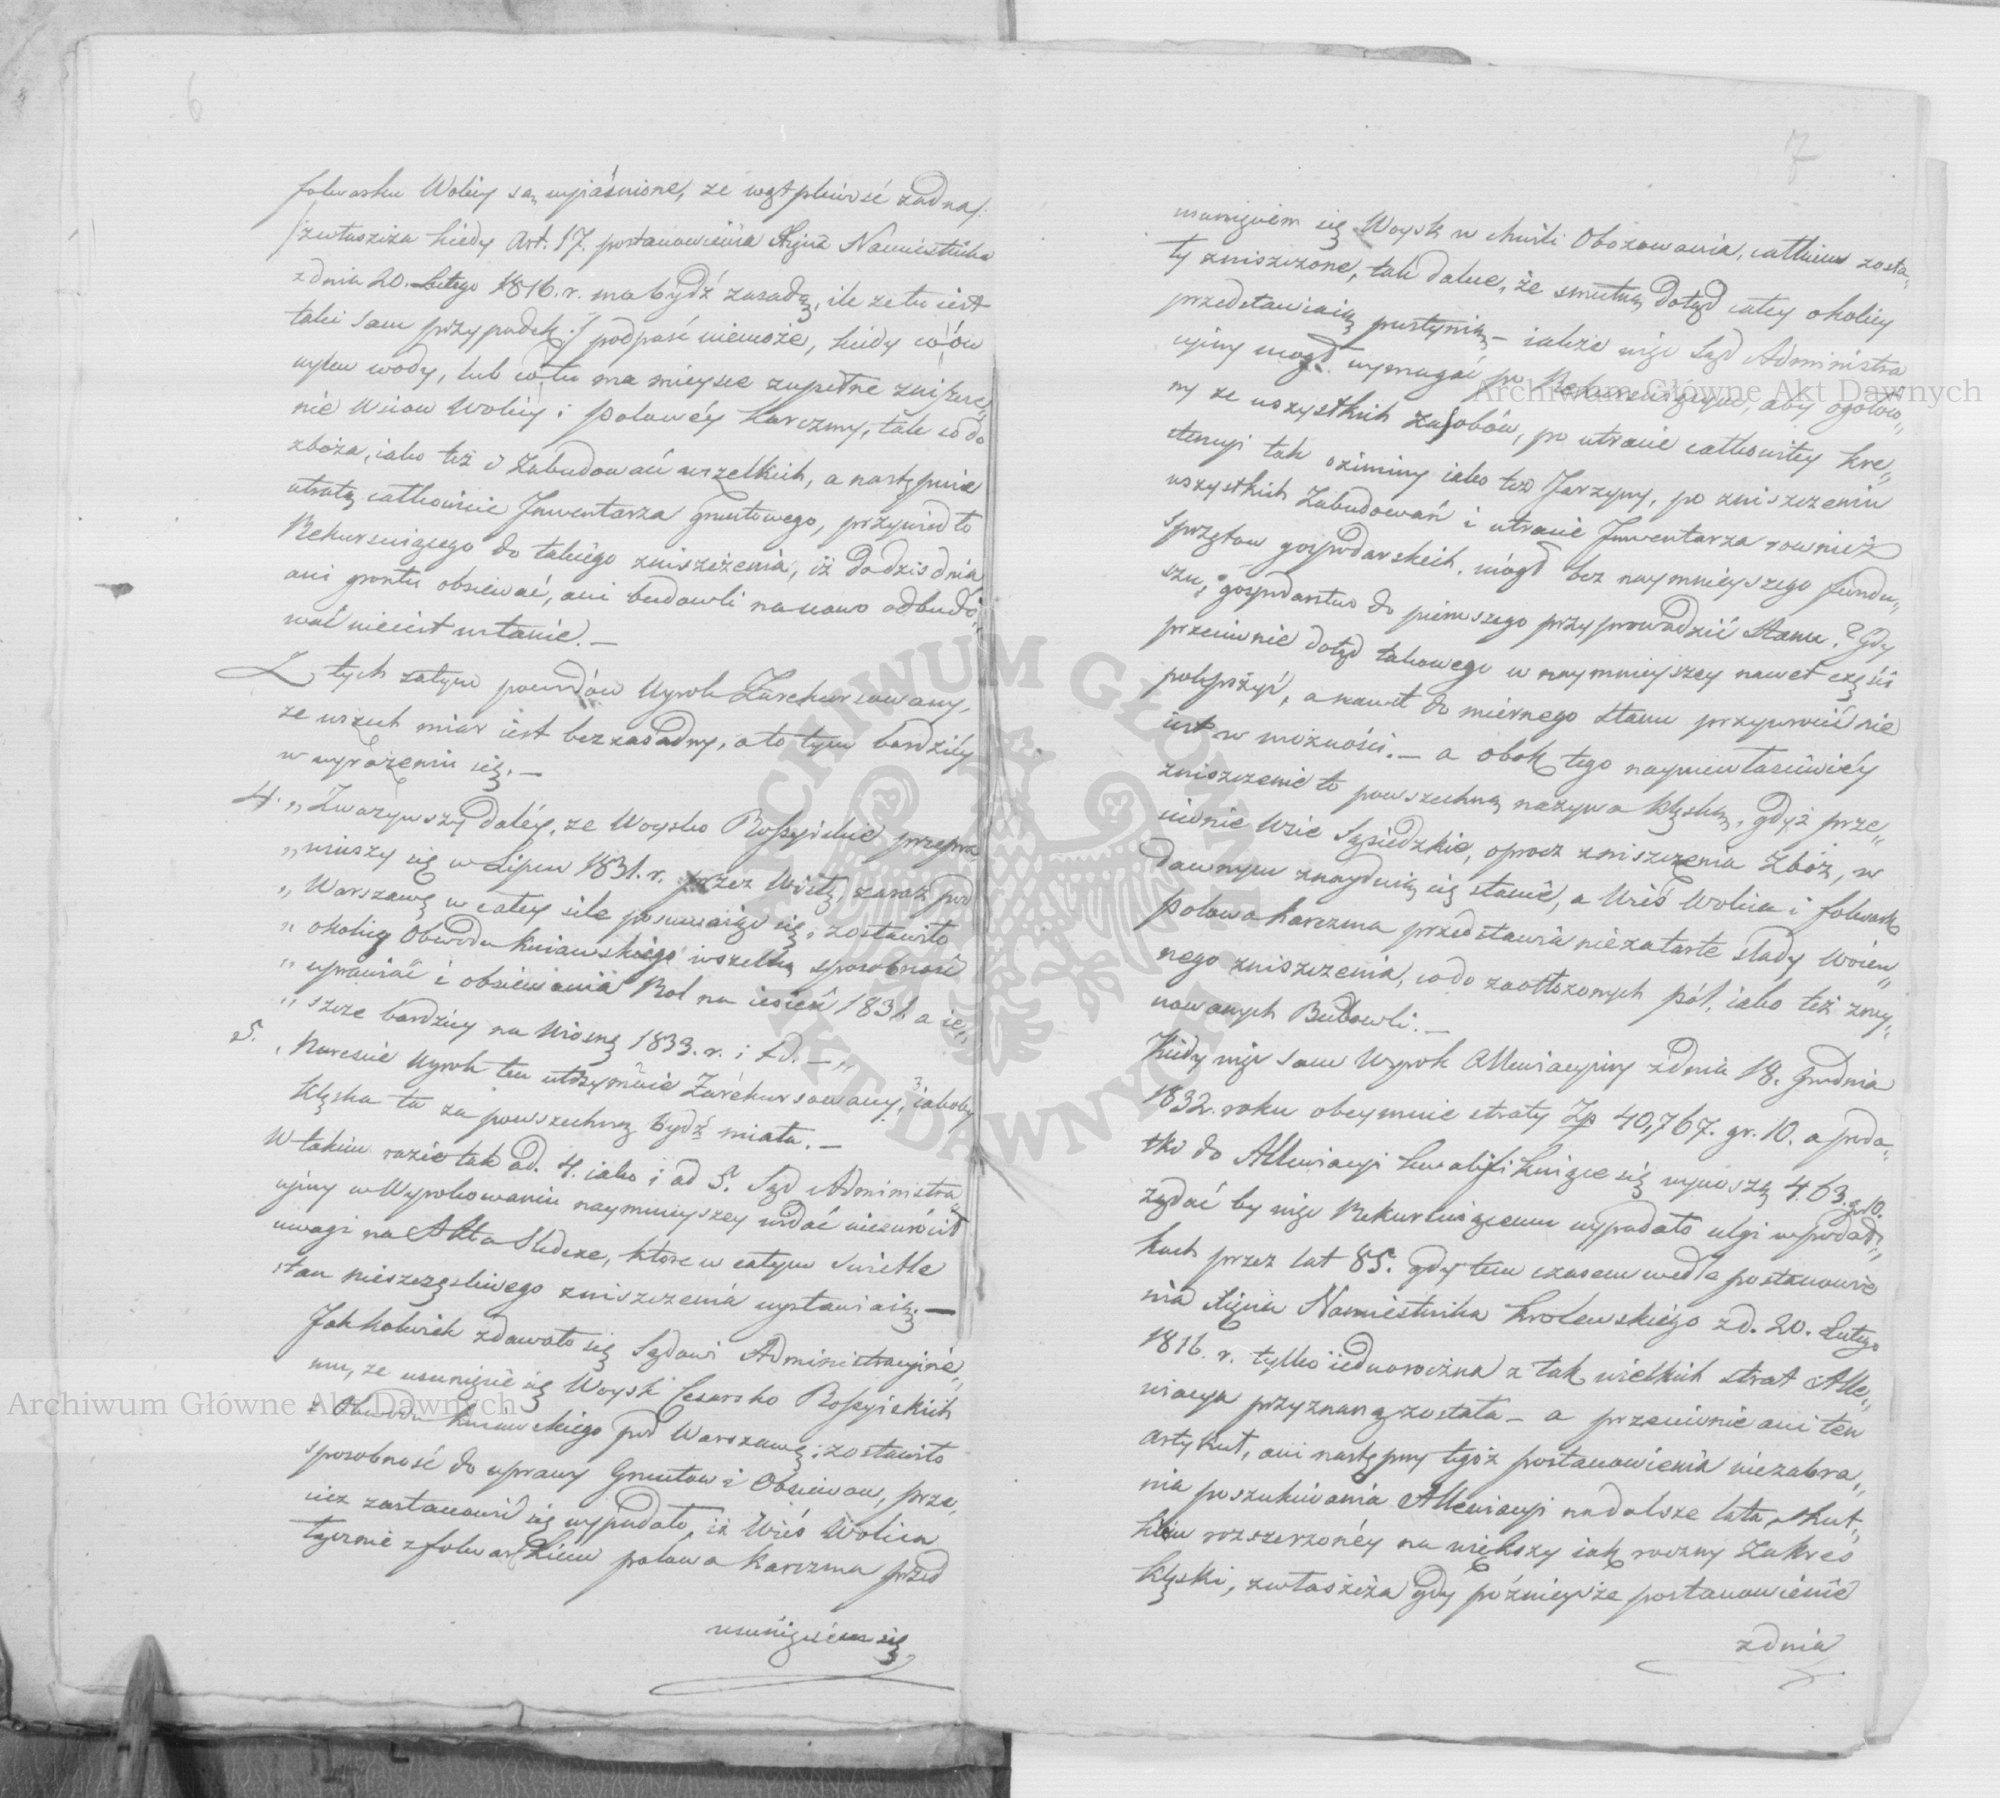 6
folwarku Wolicy są wyjaśnione, że wątpliwość żadna /:
/:zwłaszcza kiedy Art. 17. postanowienia Xięcia Namiestnika
z dnia 20. Lutego 1816. r. ma bydź zasadą, ile że tu iest
taki sam przypadek :/ podpaść niemoże, kiedy
wylew wody, lub co tu ma mieysce zupełne zniszcze„
nie wsiow Wolicy i połowéy karczmy, tak co do
zboża, iako też i Zabudowań wszelkich, a następnie
utratą całkowicie Inwentarza gruntowego, przywiedło
Rekursuiącego do takiego zniszczenia, iż do dziś dnia
ani gruntu obsiewać, ani budowli na nowo odbudo„
wać nieiest wstanie. —
Z tych zatym powodów Wyrok Zarekursowany,
ze wszech miar iest bezzasadny, a to tym bardziéy
w wyrażeniu się. —
4. „ Zważywszy daléy, że Woysko Rossyiskie przepra„
„ wiwszy się w Lipcu 1831. r. przez Wisłę, zaraz pod
„ Warszawę w całey sile posuwaiąc się, zostawiło
„ okolicy Obwodu Kuiawskiego wszelką sposobność
„ uprawiać i obsiewania Rol na iesień 1831. a ie„
„ szcze bardziey na Wiosnę 1832. r. i t.d. — „
5. Nareście Wyrok ten utrzymuie Zarekursowany, iakoby
klęska ta za powszechną bydź miała. —
W takim razie tak ad. 4. iako i ad 5. Sąd Administra
cyiny w Wyrokowaniu naymnieyszey widać niezwrócił
uwagi na Akta Śledcze, które w całym świetle
stan nieszczęśliwego zniszczenia wystawiaią. —
Jakkolwiek zdawało się Sądowi Administracyiné„
mu, że usunięcie się Woysk Cesarsko Rossyiskich
z Obwodu Kuiawskiego pod Warszawę, zostawiło
sposobność do uprawy Gruntow i Obsiewow, prze„
cież zastanowić się wypadało, iż Wieś Wolica
łącznie z folwarkiem połowa karczma przed
usunięciem się
7
usunięciem się Woysk w chwili Obozowania, całkiem zosta„
ły zniszczone, tak dalece, że smutną dotąd całey okolicy
przedstawiaią pustynią — iakże więc Sąd Administra
cyiny mógł wymagać po Rekursuiącym, aby ogołoco„
ny ze wszystkich zasobów, po utracie całkowitey kre„
stencyi tak oziminy iako też Jarzyny, po zniszczeniu
wszystkich Zabudowań i utracie Inwentarza rownież
sprzętow gospodarskich, mógł bez naymnieyszego fundu„
szu, gospodarstwo do pierwszego przyprowadzić stanu? Gdy
przeciwnie dotąd takowego w naymnieyszey nawet części
polepszyć, a nawet do miernego stanu przywrócić nie
iest w możności. — a obok tego naymniewłaściwiéy
zniszczenie to powszechną nazywa klęską, gdyż prze„
ciwnie Wsie Sąsiedzkie, oprocz zniszczenia Zbóż, w
dawnym znayduią się stanie, a Wieś Wolica i folwark
połowa karczma przedstawia niezatarte ślady Woien„
nego zniszczenia, co do zaotłożonych pól, iako też zruy„
nowanych Budowli. —
Kiedy więc sam Wyrok Allewiacyiny z dnia 18. Grudnia
1832. roku obeymuie straty Zp 40,767. gr. 10. a poda„
tki do Allewiacyi kwalifikuiące się wynoszą 463. gr 10.
żądać by więc Rekursuiącemu wypadało ulgi w podat„
kach przez lat 85. gdy tem czasem wedle postanowie
nia Xięcia Namiestnika Krolewskiégo z d. 20. Lutego
1816. r. tylko iednoroczna z tak wielkich strat Alle„
wiacya przyznaną została — a przeciwnie ani ten
artykuł, ani następny tegóż postanowienia niezabra„
nia poszukiwania Allewiacyi na dalsze lata, skut„
kiem rozszerzonéy na większy iak roczny Zakres
klęski, zwłaszcza gdy późnieysze postanowienie
z dnia
Archiwum Główne Akt Dawnych
Archiwum Główne Akt Dawnych
ARCHIWUM GŁÓWNE AKT DAWNYCH